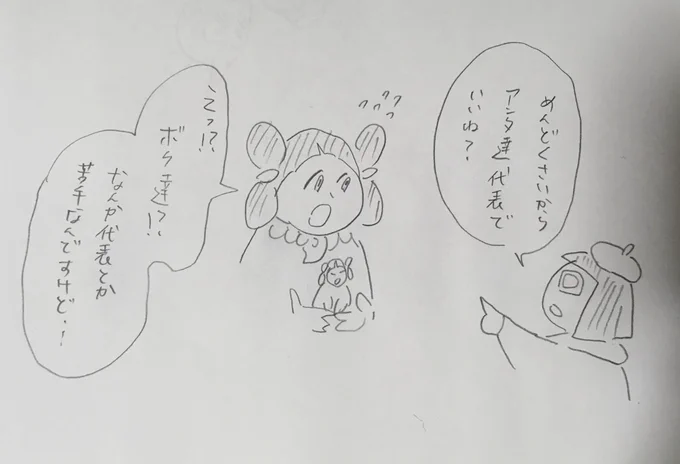 めんどくさいから
アンタ達代表で
いいね?
えっ!?
ボク達!?
なんか代表とか
苦手なんですけど・!